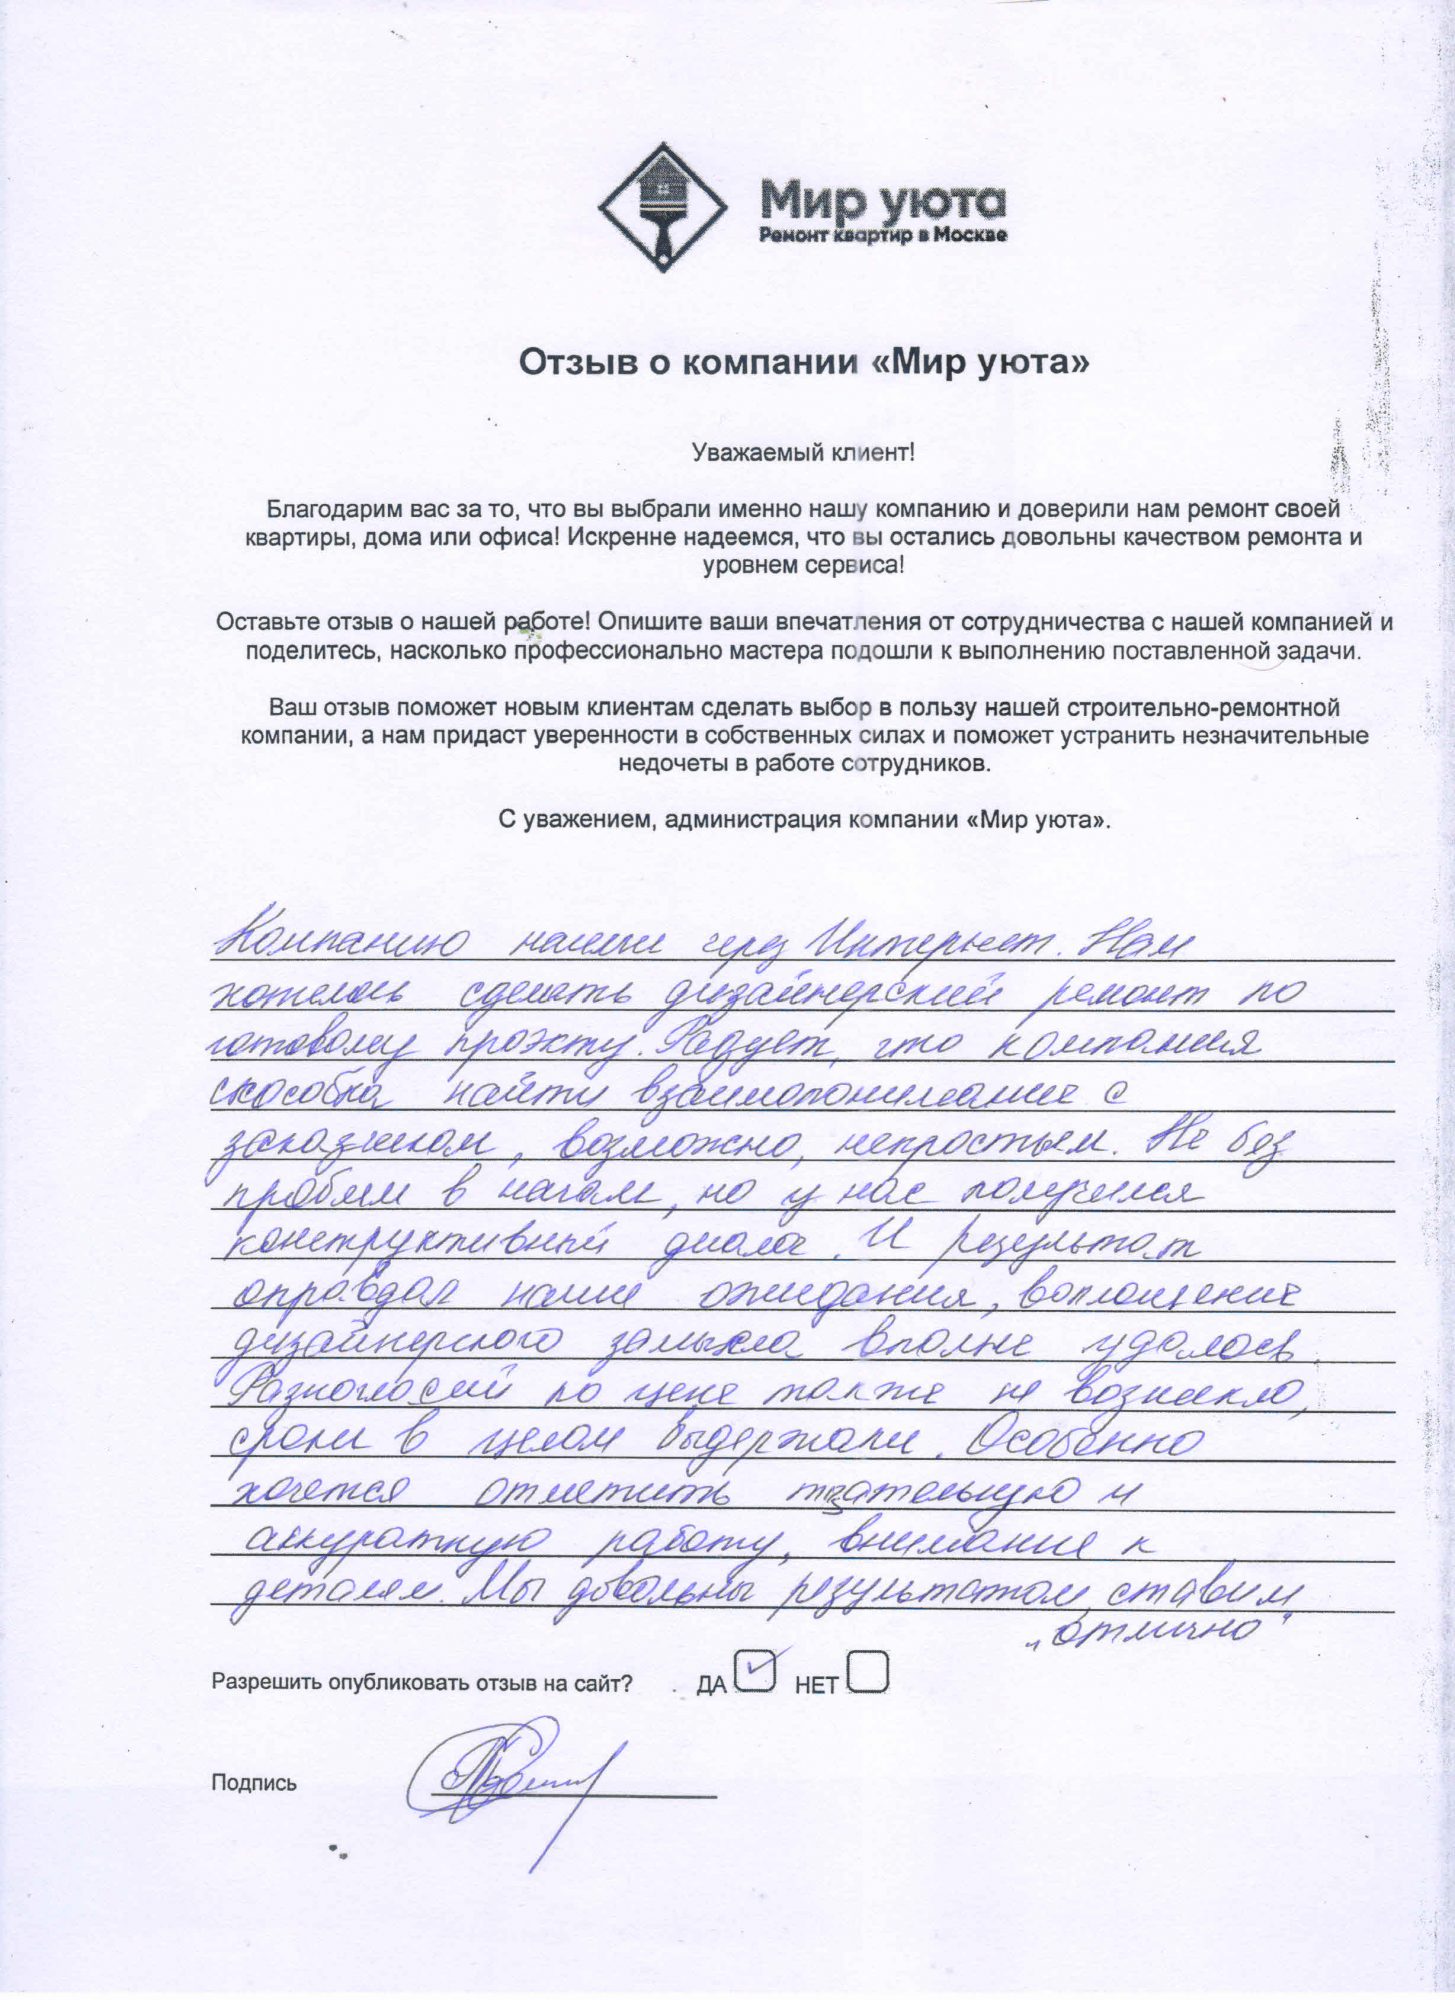 Мир уюта
Ремонт квартир в Москве
Отзыв о компании «Мир уюта»
Уважаемый клиент!
Благодарим вас за то, что вы выбрали именно нашу компанию и доверили нам ремонт своей
квартиры, дома или офиса! Искренне надеемся, что вы остались довольны качеством ремонта и
уровнем сервиса!
Оставьте отзыв о нашей работе! Опишите ваши впечатления от сотрудничества с нашей компанией и
поделитесь, насколько профессионально мастера подошли к выполнению поставленной задачи.
Ваш отзыв поможет новым клиентам сделать выбор в пользу нашей строительно-ремонтной
компании, а нам придаст уверенности в собственных силах и поможет устранить незначительные
недочеты в работе сотрудников.
С уважением, администрация компании «Мир уюта».
Компанию нашли через Интернет. Нам
хотелось сделать дизайнерский ремонт по
готовому проэкту. Радует, что компания
способна найти взаимопонимание с
заказчиком, возможно, непростым. Не без
проблем в начале, но у нас получился
конструктивный диалог. И результат
оправдал наши ожидания, воплощение
дизайнерского замысла вполне удалось.
Разногласий по цене также не возникло,
сроки в целом выдержали. Особенно
хочется отметить тщательную и
аккуратную работу, внимание к
деталям. Мы довольны результатом, ставим
„отлично“
Разрешить опубликовать отзыв на сайт? ДА НЕТ
Подпись